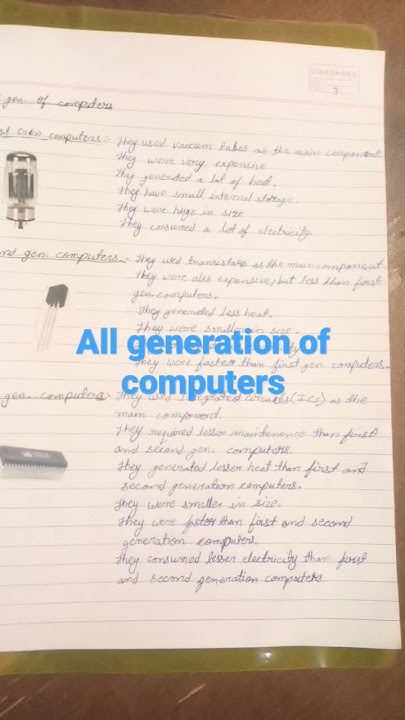 gen of computers
st Gen computers:- They used vaccum tubes as the main component.
They were very expensive.
They generated a lot of heat.
They have small internal storage.
They were huge in size
They consumed a lot of electricity.
nd gen computers:- They used transistors as the main component
They were also expensive, but less than first
gen computers.
They generated less heat.
They were smaller in size.
All generation of
computers
They were faster than first gen computers.
gen. computers:- They used Integrated circuits (ICc) as the
main component.
They required lesser maintenence than first
and second gen. computers.
They generated lesser heat than first and
second generation computers.
They were smaller in size.
They were faster than first and second
generation computers.
They consumed lesser electricity than first
and second generation computers